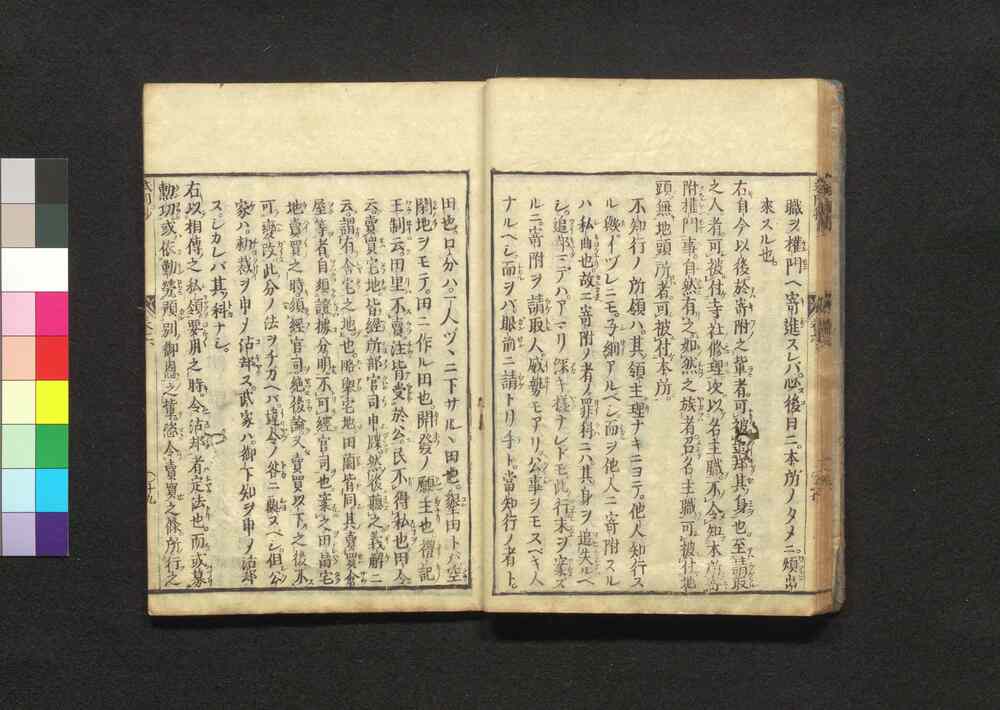 職ヲ權門ヘ寄進スレバ必後日ニ本所ノタメニ煩出
來スル也
右自今以後於寄附之輩者可被追却其身也至請取
之人者可被付寺社修理次以名主職不令知本所寄
附權門事自然有之如然之族者召名主職可被付地
頭無地頭所者可被付本所
不知行ノ所領ハ其領主理ナキニヨテ他人知行ス
ル歟イヅレニモ子細アルベシ而ヲ他人ニ寄附スル
ハ私曲也故ニ寄附ノ者ノ罪科ニハ其身ヲ追失ベ
シ追却ニテハアマリ深キ樣ナレドモ此行末ヲ案ズ
ルニ寄附ヲ請取人威勢モアリ公事ヲモスベキ人
ナルベシ而ヲバ眼前ニ請トリ手ト當知行ノ者ト
田也口分ハ一人ヅヽニ下サルヽ田也墾田トハ空
閑地ヲモテ田ニ作ル田也開發ノ願主也禮記
王制云田里不賣注皆受於公民不得私也田令
云賣買宅地皆經所部官司申牒然後聽之義解ニ
云謂有舍宅之地也賃與宅地田園皆同其賣買舍
屋等者自須證據分明不可經官司也案之田宅
地賣買之時須經官司可絶後論又賣買以下之後不
可變改此分ノ法ヲチガヘバ違令ノ咎ニ處スベシ但公
家ハ勅裁ヲ申メ沽却ス武家ハ御下知ヲ申メ沽却
スシカレバ其科ナシ
右以相傳之私領要用之時令沽却者定法也而或募
勲功或依勤勞預別御恩之輩恣令賣買之條所行之